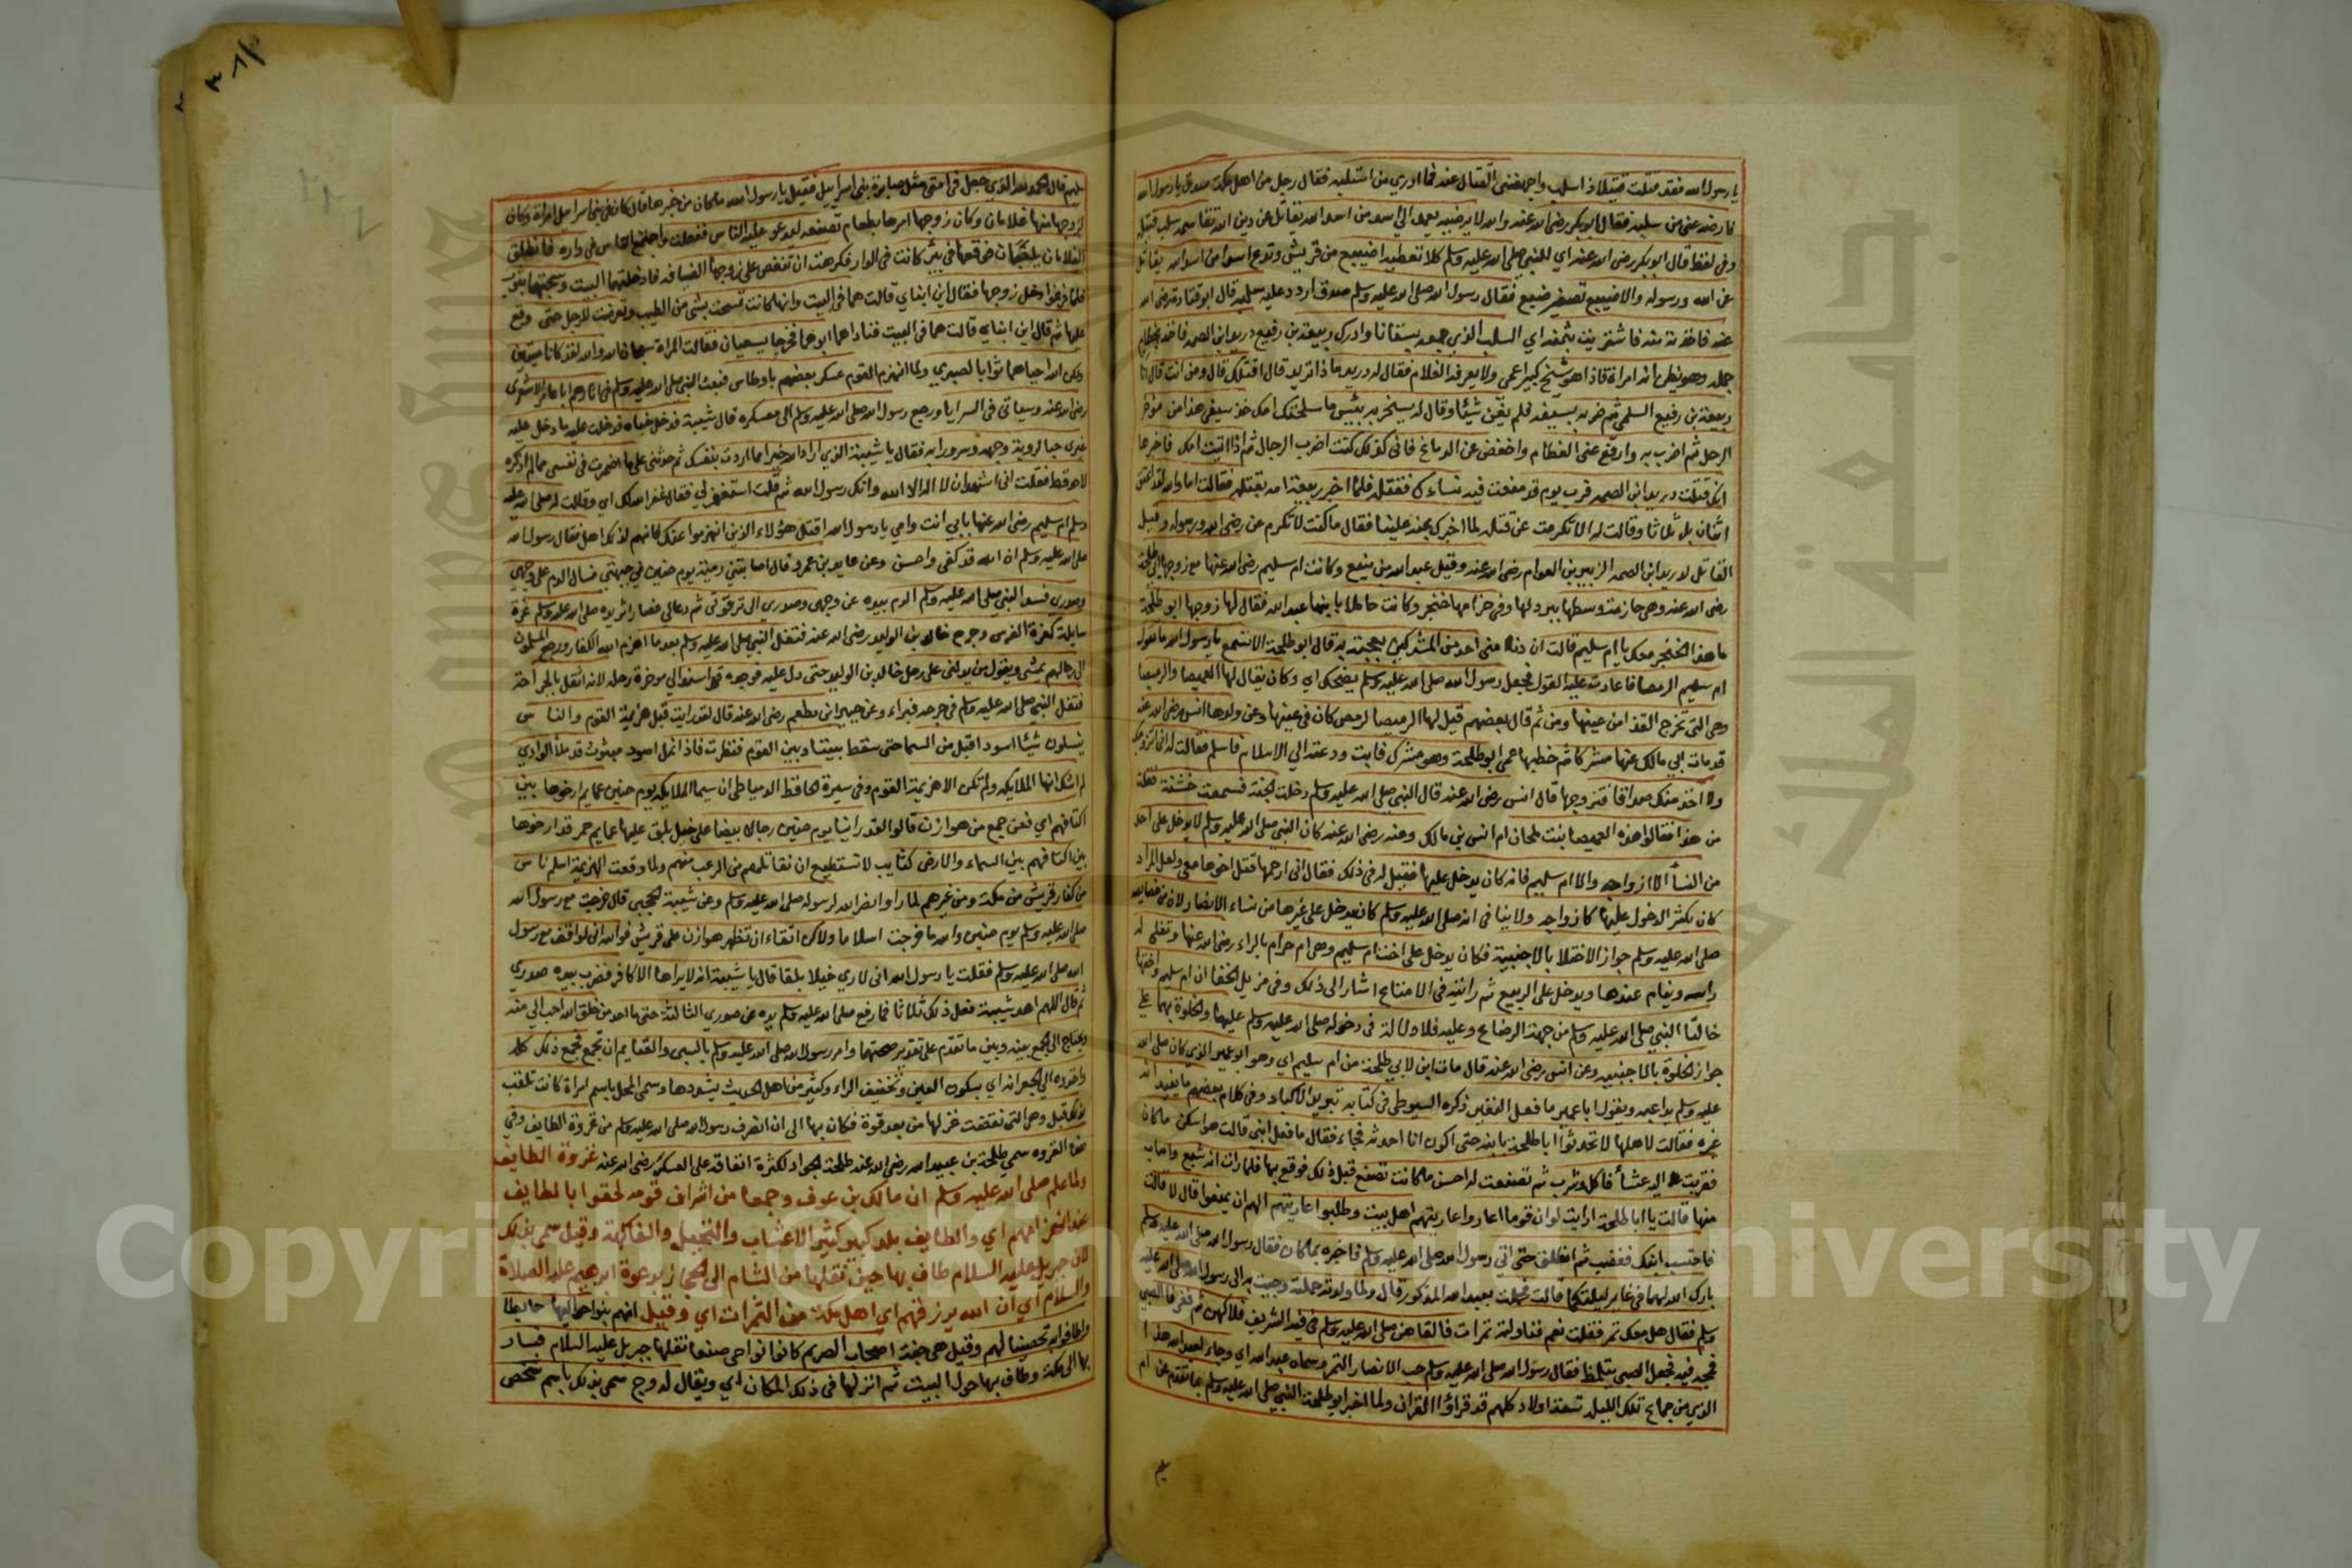 يا رسول الله فقد قتلت قتيلا ذا سلب واجهضني القتال عنه فما ادري من استلبه فقال رجل من اهل مكة صدق يا رسول الله
فارضه عني من سلبه فقال ابو بكر رضي الله عنه والله لا يرضيه يعمد الى اسد من اسد الله يقاتل عن دين الله تقاسمه سلب قتيله
وفي لفظ قال ابو بكر رضي الله عنه اي للنبي صلى الله عليه وسلم كلا تعطيه اضيبع من قريش وتدع اسدا من اسد الله يقاتل
عن الله ورسوله والاضيبع تصغير ضبع فقال رسول الله صلى الله عليه وسلم صدق اردد عليه سلبه قال ابو قتادة رضي الله
عنه فاخذته منه فاشتريت بثمنه اي السلب الذي جمعه بستانا وادرك ربيعة بن رفيع دريد ابن الصمه فاخذ بخطام
جمله وهو يظن انه امراة فاذا هو شيخ كبير اعمى ولا يعرفه الغلام فقال له دريد ماذا تريد قال اقتلك قال ومن انت قال انا
ربيعة بن رفيع السلمي ثم ضربه بسيفه فلم يغن شيئا وقال له يسخر به بئس ما سلحتك امك خذ سيفي هذا من مؤخر
الرحل ثم اضرب به وارفع عن العظام واخفض عن الدماغ فاني كذلك كنت اضرب الرجال ثم اذا اتيت امك فاخبرها
انك قتلت دريد ابن الصمه فرب يوم قد منعت فيه نساءك فقتله فلما اخبر ربيعة امه بقتله فقالت اما والله لقد اعتق
امهات لك ثلاثا وقالت له الا تكرمت عن قتله لما اخبرك بمنه علينا فقال ما كنت لاتكرم عن رضى الله ورسوله وقيل
القاتل لدريد ابن الصمه الزبير بن العوام رضي الله عنه وقيل عبد الله بن قنيع وكانت ام سليم رضي الله عنها مع زوجها ابي طلحة
رضي الله عنه وهي حازمة وسطها ببرد لها وفي حزامها خنجر وكانت حاملا بابنها عبد الله فقال لها زوجها ابو طلحة
ما هذا الخنجر معك يا ام سليم قالت ان دنا مني احد من المشركين بعجته به قال ابو طلحة الا تسمع يا رسول الله ما تقول
ام سليم الرميصا فاعادت عليه القول فجعل رسول الله صلى الله عليه وسلم يضحك اي وكان يقال لها الغميصا والرميصا
وهي التي تخرج القذا من عينها ومن ثم قال بعضهم قيل لها الرميصا لرمص كان في عينها وعن ولدها انس رضي الله عنه
قد مات ابي مالك عنها مشركا ثم خطبها عمي ابو طلحة وهو مشرك فابت ودعته الى الاسلام فاسلم فقالت له اني اتزوجك
ولا اخذ منك صداقا فتزوجها قال انس رضي الله عنه قال النبي صلى الله عليه وسلم دخلت الجنة فسمعت خشفة فقلت
من هذا فقالوا هذه الغميصا بنت ملحان ام انس بن مالك وعنه رضي الله عنه كان النبي صلى الله عليه وسلم لا يدخل على احد
من النسأ الا ازواجه والا ام سليم فانه كان يدخل عليها فقيل له في ذلك فقال اني ارحمها قتل اخوها معي ولعل المراد
كان يكثر الدخول عليها كازواجه ولا ينافي انه صلى الله عليه وسلم كان يدخل على غيرها من نساء الانصار لان من خصايصه
صلى الله عليه وسلم جواز الاختلا بالاجنبية فكان يدخل على اخت ام سليم وهي ام حرام بالراء رضي الله عنها وتفلي له
راسه وينام عندها ويدخل على الربيع ثم رايته في الامتاع اشار الى ذلك وفي مزيل الخفا ان ام سليم واختها
خالتا النبي صلى الله عليه وسلم من جهة الرضاع وعليه فلا دلالة في دخوله صلى الله عليه وسلم عليهما والخلوة بهما على
جواز الخلوة بالاجنبيه وعن انس رضي الله عنه قال مات ابن لابي طلحة من ام سليم اي وهو ابو عمير الذي كان صلى الله
عليه وسلم يداعبه ويقول ابا عمير ما فعل النغير ذكره السيوطي في كتابه تبريد الاكباد وفي كلام بعضهم ما يفيد انه
غيره فقالت لاهلها لا تحدثوا ابا طلحة بابنه حتى اكون انا احدثه فجاء فقال ما فعل ابني قالت هو اسكن ما كان
فقربت اليه عشأ فاكل وشرب ثم تصنعت له احسن ما كانت تصنع قبل ذلك فوقع بها فلما رات انه شبع واصاب
منها قالت يا ابا طلحة ارايت لو ان قوما اعاروا عاريتهم اهل بيت وطلبوا عاريتهم الهم ان يمنعوا قال لا قالت
فاحتسب ابنك فغضب ثم انطلق حتى اتى رسول الله صلى الله عليه وسلم فاخبره بما كان فقال رسول الله صلى الله عليه وسلم
بارك الله لهما في غابر ليلتكما قالت فحملت بعبد الله المذكور قال ولما ولدته حملته وجيت به الى رسول الله صلى الله عليه
وسلم فقال هل معك تمر فقلت نعم فناولته تمرات فالقاهن صلى الله عليه وسلم في فيه الشريف فلاكهن ثم فغر فا الصبي
فمجه فيه فجعل الصبي يتلمظ فقال رسول الله صلى الله عليه وسلم حب الانصار التمر وسماه عبد الله اي وجاء لعبد الله هذا
الذي من جماع تلك الليلة تسعة اولاد كلهم قد قراؤا القران ولما اخبر ابو طلحة النبي صلى الله عليه وسلم بما تقدم عن ام
سليم
سليم قال الحمد لله الذي جعل في امتي مثل صابرة بني اسراييل فقيل يا رسول الله ما كان من خبرها قال كان في بني اسرائيل امراة وكان
لزوجها منها غلامان وكان زوجها امرها بطعام تصنعه ليدعو عليه الناس ففعلت واجتمع الناس في داره فانطلق
الغلامان يلعبان فوقعا في بئر كانت في الدار فكرهت ان تنغص على زوجها الضيافه فادخلتهما البيت وسجتهما بثوب
فلما فرغوا دخل زوجها فقال اين ابناي قالت هما في البيت وانها كانت تمسحت بشي من الطيب وتعرضت للرجل حتى وقع
عليها ثم قال اين ابناي قالت هما في البيت فناداهما ابوهما فخرجا يسعيان فقالت المراة سبحان الله والله لقد كانا ميتين
ولكن الله احياهما ثوابا لصبري ولما انهزم القوم عسكر بعضهم باوطاس فبعث النبي صلى الله عليه وسلم في اثارهم ابا عامر الاشعري
رضي الله عنه وسياتي في السرايا ورجع رسول الله صلى الله عليه وسلم الى معسكره قال شيبة فدخل خباه فدخلت عليه ما دخل عليه
غيري حبا لروية وجهه وسرورا به فقال يا شيبة الذي اراد الله خير مما اردت بنفسك ثم حدثني بما اضمرت في نفسي مما لم اذكره
لاحد قط فقلت اني اشهد ان لا اله الا الله وانك رسول الله ثم قلت استغفر لي فقال غفر الله لك اي وقالت له صلى الله عليه
وسلم ام سليم رضي الله عنها بابي انت وامي يا رسول الله اقتل هؤلاء الذين انهزموا عنك فانهم لذلك اهل فقال رسول الله
صلى الله عليه وسلم ان الله قد كفى واحسن وعن عايد بن عمرو قال اصابتني رمية يوم حنين في جبهتي فسال الدم على وجهي
وصدري فسد النبي صلى الله عليه وسلم الدم بيده عن وجهي وصدري الى ترقوتي ثم دعا لي فصار اثر يده صلى الله عليه وسلم غرة
سايلة كغرة الفرس وجرح خالد بن الوليد رضي الله عنه فتفل النبي صلى الله عليه وسلم بعد ما اهزم الله الكفار ورجع المسلمون
الى رحالهم يمشي ويقول من يدلني على رحل خالد بن الوليد حتى دل عليه فوجده قد استند الى موخرة رحله لانه اثقل بالجراحة
فتفل النبي صلى الله عليه وسلم في جرحه فبراء وعن جبير ابن مطعم رضي الله عنه قال لقد رايت قبل هزيمة القوم والناس
يقتتلون شيئا اسود اقبل من السما حتى سقط بيننا وبين القوم فنظرت فاذا نمل اسود مبثوث قد ملأ الوادي
لم اشك انها الملائكه ولم تكن الا هزيمة القوم وفي سيرة الحافظ الدمياطي ان سيما الملايكه يوم حنين عمايم ارخوها بين
اكتافهم اي فعن جمع من هوازن قالوا لقد راينا يوم حنين رجالا بيضا على خيل بلق عليها عمايم حمر قد ارخوها
بين اكتافهم بين السماء والارض كتايب لا تستطيع ان نقاتلهم من الرعب منهم ولما وقعت الهزيمة اسلم ناس
من كفار قريش من مكة ومن غيرهم لما راوا نصر الله لرسوله صلى الله عليه وسلم وعن شيبة الحجبي قال خرجت مع رسول الله
صلى الله عليه وسلم يوم حنين والله ما خرجت اسلاما ولاكن اتقاء ان تظهر هوازن على قريش فوالله اني لواقف مع رسول
الله صلى الله عليه وسلم فقلت يا رسول الله اني لاري خيلا بلقا قال يا شيبة انه لا يراها الا كافر فضرب بيده صدري
ثم قال اللهم اهد شيبة فعل ذلك ثلاثا فما رفع صلى الله عليه وسلم يده عن صدري الثالثة حتى ما احد من خلق الله احب الي منه
ويحتاج الى الجمع بينه وبين ما تقدم على تقدير صحتهما وامر رسول الله صلى الله عليه وسلم بالسبى والغنايم ان تجمع فجمع ذلك كله
واحذروه الى الجعرانه اي بسكون العين وتخفيف الراء وكثير من اهل الحديث يشددها وسمى المحل باسم امراة كانت تلقب
بذلك قيل وهي التي نقضت غزلها من بعد قوة فكان بها الى ان انصرف رسول الله صلى الله عليه وسلم من غزوة الطايف وفي
هذه الغزوه سمي طلحة بن عبيد الله رضي الله عنه طلحة الجواد لكثرة انفاقه على العسكر رضي الله عنه غزوة الطايف
ولما علم صلى الله عليه وسلم ان مالك بن عوف وجمعا من اشراف قومه لحقوا بالطايف
عند انهزامهم اي والطايف بلد كبير كثير الاعناب والنخيل والفاكهة وقيل سمى بذلك
لان جبريل عليه السلام طاف بها حين نقلها من الشام الى الحجاز بدعوة ابرهيم عليه الصلاة
والسلام اي ان الله يرزقهم اي اهل مكة من الثمرات اي وقيل انهم بنوا حواليها حايطا
واطافوا به تحصينا لهم وقيل هي جنة اصحاب الصريم كانوا نواحي صنعا نقلها جبريل عليه السلام فسار
بها الى مكة وطاف بها حول البيت ثم انزلها في ذلك المكان اي ويقال له وج سمى بذلك باسم شخص
Copyright © King Saud University
جامعة الملك سعود